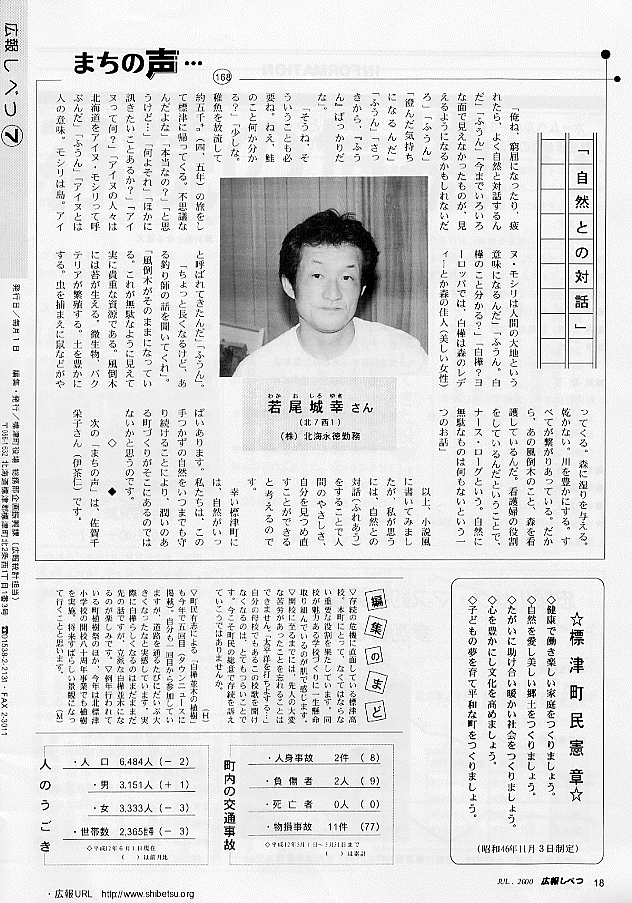 広報しべつ⑦
発行日／毎月1日　編集・発行／標津町役場 総務部企画振興課（広報統計担当）
〒086-1632 北海道標津郡標津町北2条西1丁目1番3号　☎01538-2-2131・FAX 2-3011
まちの声… 168
「自然との対話」
「俺ね、窮屈になったり、疲
れたら、よく自然と対話するん
だ」「ふうん」「今までいろいろ
な面で見えなかったものが、見
えるようになるかもしれないだ
ろ」「ふうん」
「澄んだ気持ち
になるんだ」
「ふうん」「さっ
きから、「ふう
ん」ばっかりだ
な」
「そうね、そ
ういうことも必
要ね。ねえ、鮭
のこと何か分か
る？」「少しな。
稚魚を放流して
約五千㌔（四、五年）の旅をし
て標津に帰ってくる。不思議な
んだよな」「本当なの？」「と思
うけど…」「何よそれ」「ほかに
訊きたいことあるか？」「アイ
ヌって何？」「アイヌの人々は
北海道をアイヌ・モシリって呼
ぶんだ」「ふうん」「アイヌとは
人の意味。モシリは島。アイ
ヌ・モシリは人間の大地という
意味になるんだ」「ふうん。白
樺のこと分かる？」「白樺？ヨ
ーロッパでは、白樺は森のレデ
ィーとか森の佳人（美しい女性）
と呼ばれてきたんだ」「ふうん」。
「ちょっと長くなるけど、あ
る釣り師の話を聞いてくれ」。
「風倒木がそのままになってい
る。これが無駄なように見えて
実に貴重な資源である。風倒木
には苔が生える。微生物、バク
テリアが繁殖する。土を豊かに
する。虫を捕まえに鼠などがや
ってくる。森に湿りを与える。
乾かない。川を豊かにする。す
べてが繋がりあっている。だか
ら、あの風倒木のこと、森を看
護しているんだ。看護婦の役割
をしているんだということで、
ナース・ローグという。自然に
無駄なものは何もないという一
つのお話」
以上、小説風
に書いてみまし
たが、私が思う
には、自然との
対話（ふれあう）
をすることで人
間のやさしさ、
自分を見つめ直
すことができる
と考えるので
す。
幸い標津町に
は、自然がいっ
ぱいあります。私たちは、この
手つかずの自然をいつまでも守
り続けることにより、潤いのあ
る町づくりがそこにあるのでは
ないかと思うのです。
◇　◆
次の「まちの声」は、佐賀千
栄子さん（伊茶仁）です。
わか お しろ ゆき
若尾城幸さん
（北7西1）
（株）北海永徳勤務
☆標津町民憲章☆
◇健康で働き楽しい家庭をつくりましょう。
◇自然を愛し美しい郷土をつくりましょう。
◇たがいに助け合い暖かい社会をつくりましょう。
◇心を豊かにし文化を高めましょう。
◇子どもの夢を育て平和な町をつくりましょう。
（昭和46年11月3日制定）
編集のまど
▽存続の危機に直面している標津高
校。本町にとって、なくてはならな
い重要な役割を果たしています。同
校が魅力ある学校づくりに一生懸命
取り組んでいるのが肌で感じます。
▽開校に至るまでには、先人の大変
な苦労があったことを忘れることは
できません。「太平洋を打ち下す」こと。
自分の母校でもあるこの校歌を聞け
なくなるのは、とてもつらいことで
す。今こそ町民の総意で存続を訴え
ていこうではありませんか。
（H）
▽町民有志による「白樺並木の植樹」
も今年で五回目（タウンニュースに
掲載）。自分も一回目から参加してい
ますが、道路を通るたびにだいぶ大
きくなったなと実感しています。実
際に白樺らしくなるのはまだまだ
先の話ですが、立派な白樺並木にな
るのが楽しみです。▽例年行われて
いる町植樹祭のほか、今年は北標津
小学校の開校八十周年事業でも植樹
を実施。将来すばらしい景観になっ
て行くことと思います。　（M）
町内の交通事故
・人身事故　2件（ 8）
・負傷者　2人（ 9）
・死亡者　0人（ 0）
・物損事故　11件（77）
◇平成12年5月1日～5月31日まで
（　）は累計
人のうごき
・人口　6,484人（－ 2）
・男　3,151人（＋ 1）
・女　3,333人（－ 3）
・世帯数　2,365世帯（－ 3）
◇平成12年6月1日現在
（　）は前月比
・広報URL　http://www.shibetsu.org
JUL. 2000　広報しべつ　18